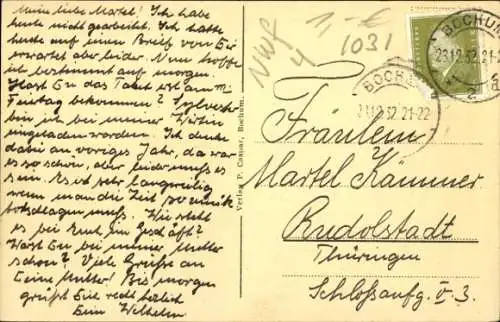 Mein liebe Martel! Ich habe
heute nicht gearbeitet. Ich hatte
heute auf einen Brief von Dir
erwartet aber leider. Nun hoffe
ich bestimmt auf morgen.
Hast Du das Paket erst am
Freitag bekommen? Sylvester
bin ich bei meiner Wirtin
eingeladen worden. Ich denke
dabei an voriges Jahr, da war
es so schön, aber leider muß es
sein. Es ist sehr langweilig
wenn man die Zeit so
muß. Wie steht
es bei Euch im Geschäft?
Warst Du bei meiner Mutter
schon? Viele Grüße an
Deine Mutter! Bis morgen
grüßt Dich recht herzlich
Dein Wilhelm
Verlag P. Caspar, Bochum.
1031
BOCHUM
23.12.32.21-22
BOCHUM
23.12.32.21-22
Fräulein
Martel Kämmer
Rudolstadt
Thüringen
Schloßaufg. V. 3.